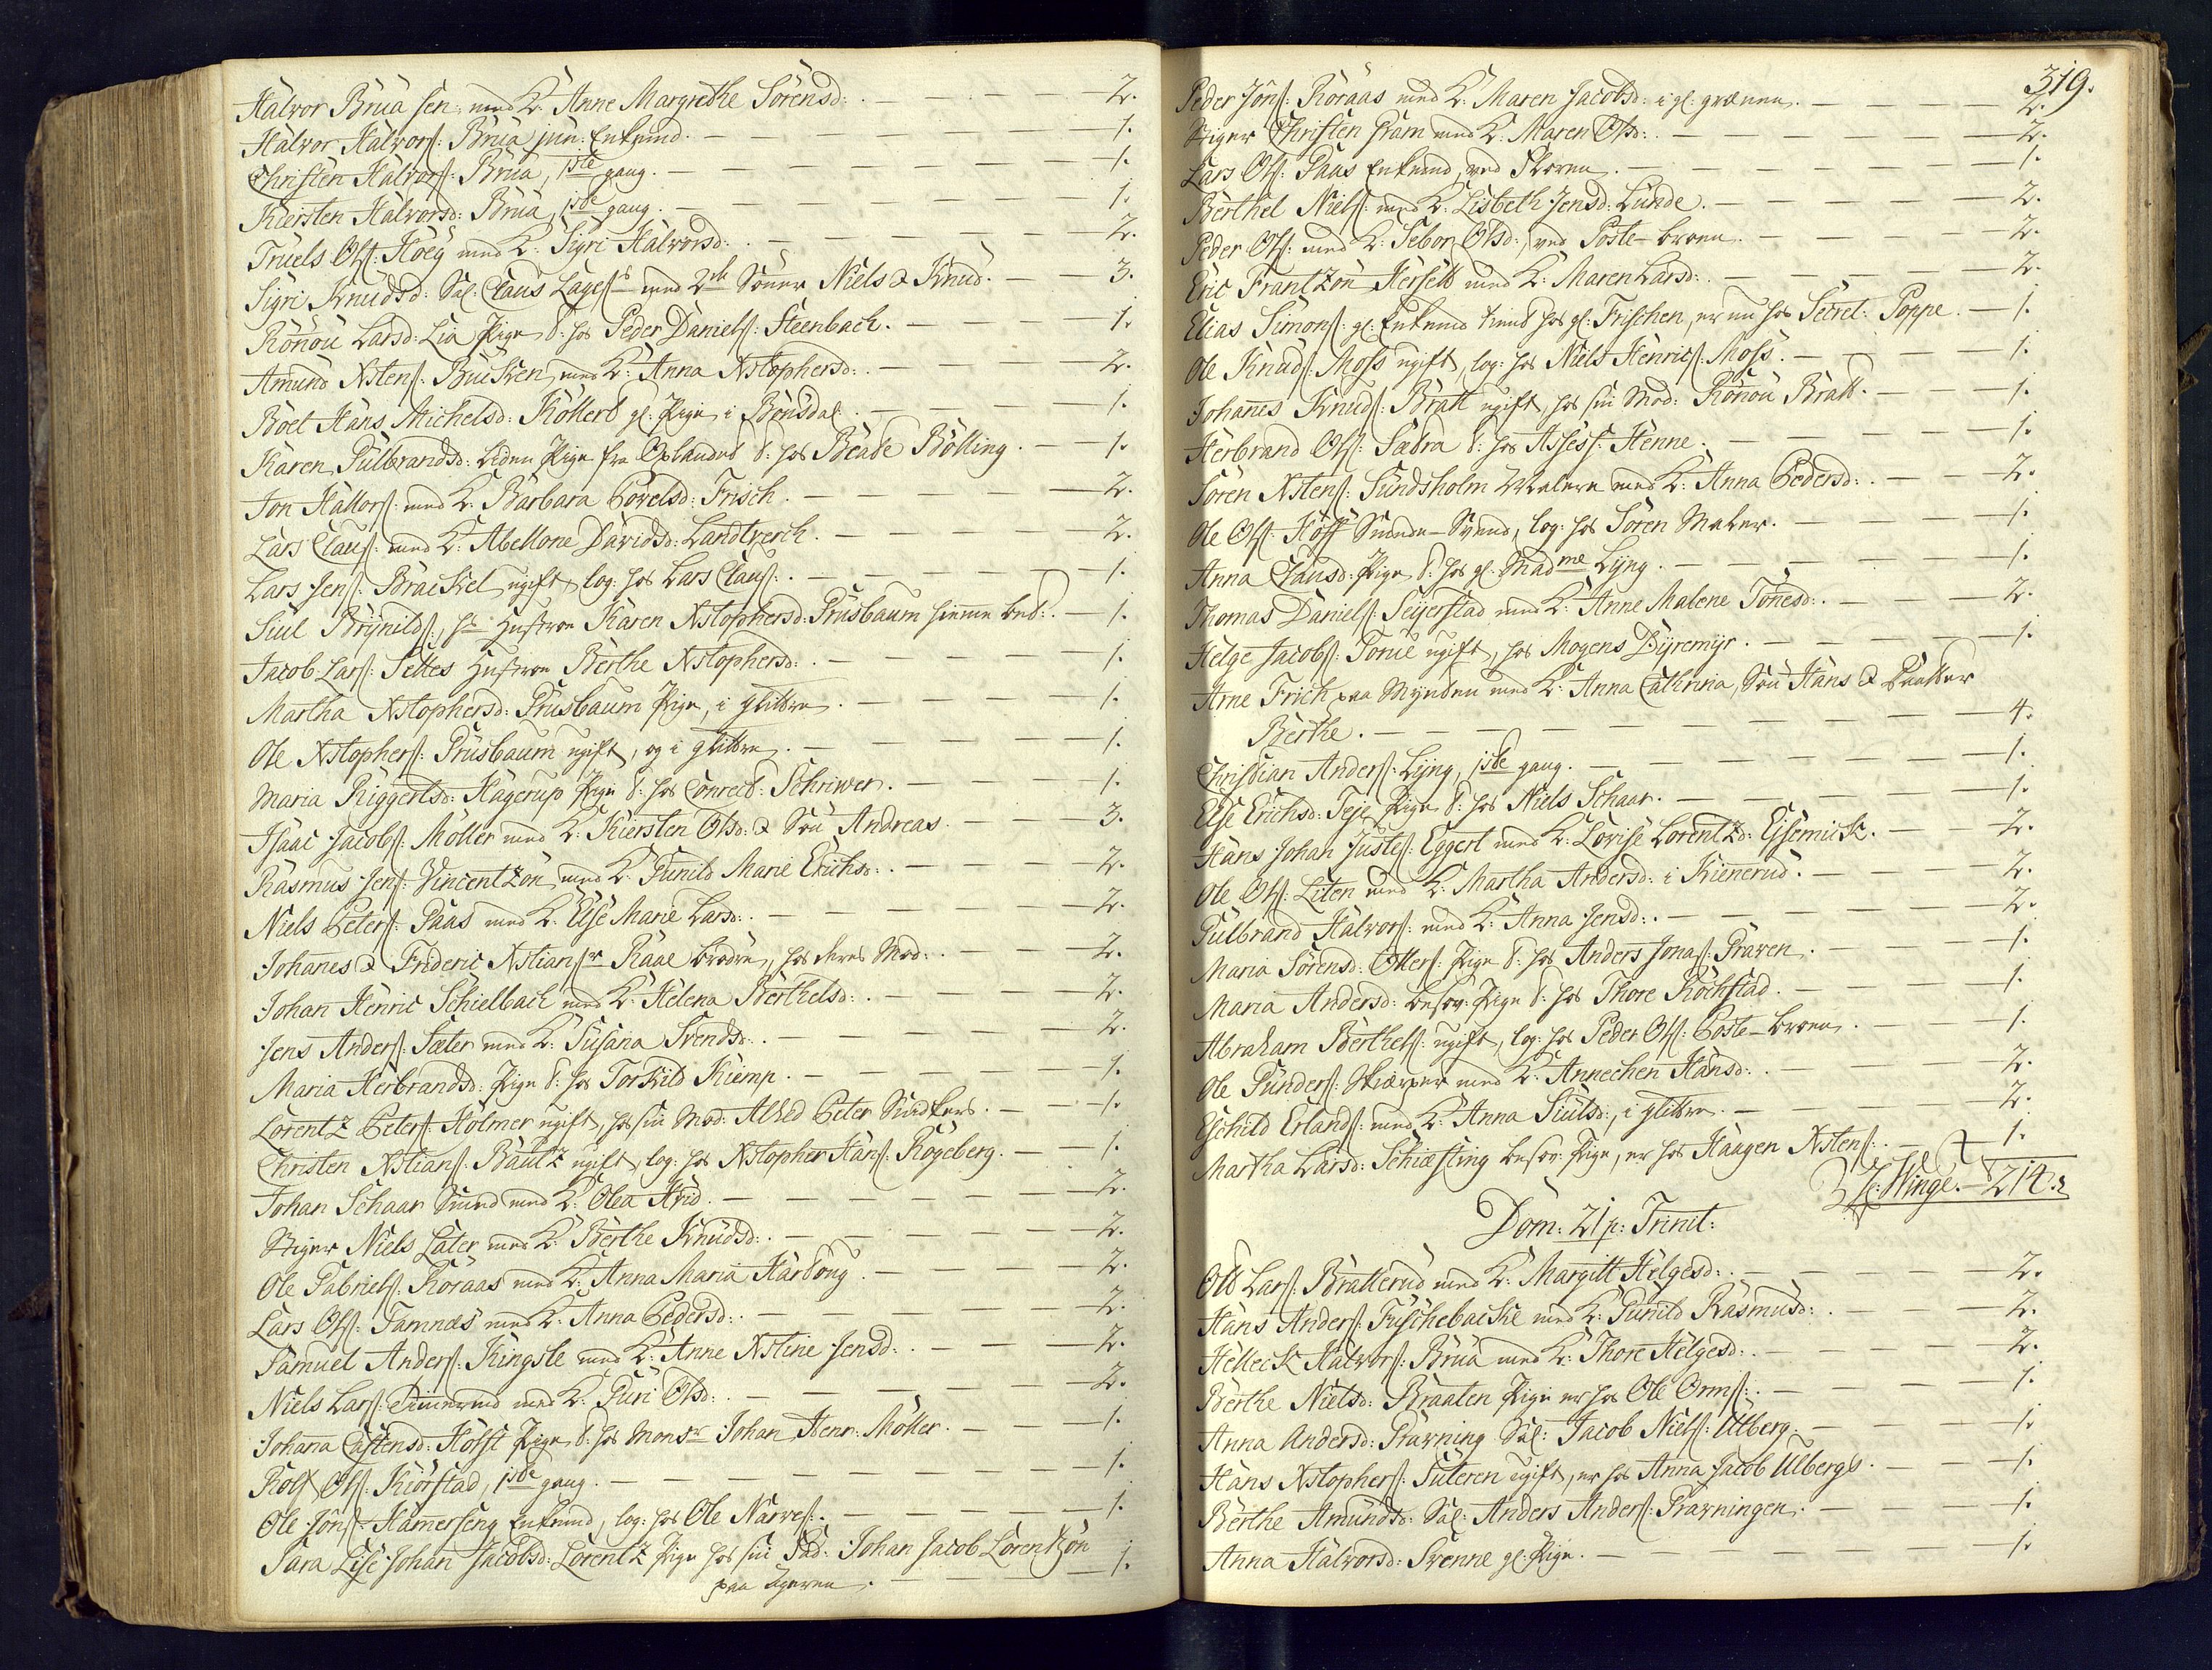 Halvor Brua sen: med K: Anne Margrethe Sörensd: . — — — 2.
Halvor Halvors: Brua jun: Enkemd. — — — 1.
Christen Halvors: Brua, 1ste gang. — — — 1.
Kiersten Halvorsd: Brua, 1ste gang. — — — 1.
Truels Ols: Höeg med K: Sigri Halvorsd: . — — — 2.
Sigri Knudsd: Sal: Claus Lages: med 2de Sönner Niels & Knud. — — 3.
Rönou Larsd: Lia Pige t: hos Peder Daniels: Steenbach. — — 1.
Amund Xstens: Buskven med K: Anna Xstophersd: . — — 2.
Boel Hans Michelsd: Kollert gl: Pige i Bonsdal. — — 1.
Karen Gulbrandsd: liden Pige fra Oplandet t: hos Beate Bölling. — 1.
Jon Hallors: med K: Barbara Povelsd: Frisch. — — 2.
Lars Claus: med K: Abellone Davidsd: Landtverch. — — 2.
Lars Jens: Brackel ugift, log: hos Lars Claus: . — — 1.
Siul Brynilds:, hs Hustroe Karen Xstophersd: Grusbaum hiemme ber: . — 1.
Jacob Lars: Settes Hustroe Berthe Xstophersd: . — — 1.
Martha Xstophersd: Grusbaum Pige, i Glittre. — — 1.
Ole Xstophers: Grusbaum ugift, og i Glittre. — — 1.
Maria Riggertsd: Hagerup Pige t: hos Conrect: Schriwer. — — 1.
Isaac Jacobs: Möller med K: Kiersten Olsd: & Sön Andreas. — — 3.
Rasmus Jens: Vincentzön med K: Gunild Marie Erichsd: . — — 2.
Niels Peters: Gaas med K: Else Marie Larsd: . — — 2.
Johanes & Frideric Xstians: Raae brödre, hos deres Mod: . — — 2.
Johan Henric Schielbach med K: Helena Berthelsd: . — — 2.
Jens Anders: Sæter med K: Susana Svendsd: . — — 2.
Maria Herbrandsd: Pige t: hos Torkild Kiemp. — — 1.
Lorentz Peters: Holmer ugift, hos sin Mod: Alhed Peter Smidkers. — — 1.
Christen Xstians: Bautz ugift, log: hos Xstopher Hans: Rogeberg. — 1.
Johan Schaar Smed med K: Olea Hvid. — — 2.
Stiger Niels Later med K: Berthe Knudsd: . — — 2.
Ole Gabriels: Roraas med K: Anna Maria Hardong. — — 2.
Lars Ols: Tamnæs med K: Anna Pedersd: . — — 2.
Samuel Anders: Kingsle med K: Anne Xstine Jensd: . — — 2.
Niels Lars: Dimerud med K: Guri Olsd: . — — 2.
Johana Castensd: Holst Pige t: hos Monsr Johan Henr: Möller. — — 1.
Rolf Ols: Kiörstad, 1ste gang. — — 1.
Ole Jons: Hamerseng Enkemd, log: hos Ole Narves: . — — 1.
Sara Lise Johan Jacobsd: Lorentz Pige hos sin Fad: Johan Jacob Lorentzön
paa Ageren. — — 1.
319.
Peder Jons: Roraas med K: Maren Jacobsd: i gl: grænen. — — 2.
Stiger Christen Pram med K: Maren Olsd: . — — 2.
Lars Ols: Gaas Enkemd, ved Skoven. — — 1.
Berthel Niels: med K: Lisbeth Jensd: Lunde. — — 2.
Peder Ols: med K: Sebor Olsd:, ved Poste-broen. — — 2.
Eric Frantzön Hersett med K: Maren Larsd: . — — 2.
Elias Simons: gl: Enkemd tient hos gl: Frischen, er nu hos Secret: Poppe. — 1.
Ole Knuds: Moss ugift, log: hos Niels Henrics: Moss. — — 1.
Johanes Knuds: Bratt ugift, hos sin Mod: Rönou Bratt. — — 1.
Herbrand Ols: Sæbra t: hos Assess: Henne. — — 1.
Sören Xstens: Sundsholm Malere med K: Anna Pedersd: . — — 2.
Ole Ols: Hoff Smede-Svend, log: hos Sören Maler. — — 1.
Anna Clausd: Pige t: hos gl: Madme Lyng. — — 1.
Thomas Daniels: Seijerstad med K: Anne Malene Tönesd: . — — 2.
Helge Jacobs: Torue ugift, hos Mogens Dyremyr. — — 1.
Arne Frich paa Mynten med K: Anna Cathrina, Sön Hans & Daatter
Berthe. — — 4.
Christian Anders: Lyng, 1ste gang. — — 1.
Else Erichsd: Teje Pige t: hos Niels Schaar. — — 1.
Hans Johan Justes: Eggert med K: Lovise Lorentzd: Eisernick. — — 2.
Ole Ols: Liten med K: Martha Andersd: i Kienerud. — — 2.
Gulbrand Halvors: med K: Anna Jensd: . — — 2.
Maria Sörensd: Otters: Pige t: hos Anders Jonas: Graven. — — 1.
Maria Andersd: besov: Pige t: hos Thore Rochstad. — — 1.
Abraham Berthels: ugift, log: hos Peder Ols: Poste-broen. — — 1.
Ole Gunders: Skiærper med K: Annechen Hansd: . — — 2.
Eschild Erlands: med K: Anna Siulsd:, i Glittre. — — 2.
Martha Larsd: Schiæsting besov: Pige, er hos Haagen Xstens: . — 1.
H: Winge. — 214.
Dom: 21 p: Trinit:
Ole Lars: Bratterud med K: Margitt Helgesd: . — — 2.
Hans Anders: Fuschebacke med K: Gunild Rasmusd: . — — 2.
Helleck Halvors: Brua med K: Thore Helgesd: . — — 2.
Berthe Nielsd: Braaten Pige er hos Ole Orms: . — — 1.
Anna Andersd: Gravning Sal: Jacob Niels: Ulberg. — — 1.
Hans Xstophers: Suteren ugift, er hos Anna Jacob Ulbergs. — — 1.
Berthe Amundsd: Sal: Anders Anders: Gravningen. — — 1.
Anna Halvorsd: Svenne gl: Pige. — — 1.